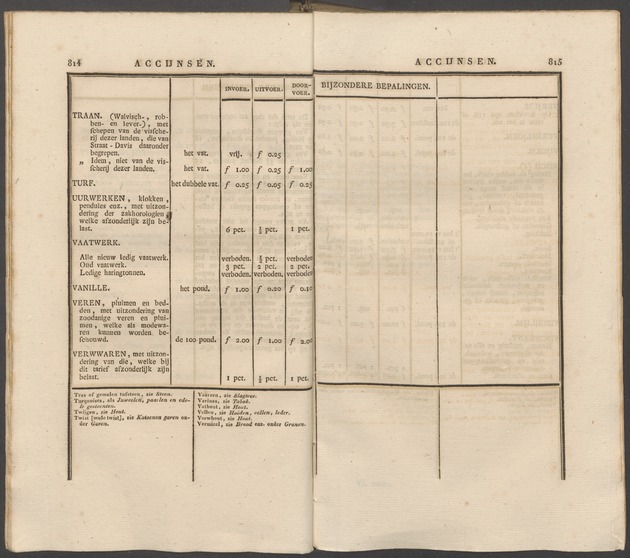 814 ACCIJNSEN.
INVOER. UITVOER. DOOR-
VOER.
TRAAN. (Walvisch-, rob-
ben- en lever-), met
schepen van de vissche-
rij dezer landen, die van
Straat-Davis daaronder
begrepen. het vat. vrij. f 0.25
„ Idem, niet van de vis-
scherij dezer landen. het vat. f 1.00 f 0.25 f 1.00
TURF. het dubbele vat. f 0.25 f 0.05 f 0.25
UURWERKEN, klokken,
pendules enz., met uitzon-
dering der zakhorologien,
welke afzonderlijk zijn be-
last. 6 pct. ½ pct. 1 pct.
VAATWERK.
Alle nieuw ledig vaatwerk. verboden. ½ pct. verboden
Oud vaatwerk. 3 pct. 2 pct. 2 pct.
Ledige haringtonnen. verboden. verboden. verboden.
VANILLE. het pond. f 1.00 f 0.20 f 0.10
VEREN, pluimen en bed-
den, met uitzondering van
zoodanige veren en plui-
men, welke als modewa-
ren kunnen worden be-
schouwd. de 100 pond. f 2.00 f 1.00 f 2.00
VERWWAREN, met uitzon-
dering van die, welke bij
dit tarief afzonderlijk zijn
belast. 1 pct. ½ pct. 1 pct.
Tras of gemalen tufsteen, zie Steen.
Turquoisen, als Juweelen, paarlen en ede-
le gesteenten.
Twijgen, zie Hout.
Twist [wole twist], zie Katoenen garen on-
der Garen.
Vaarzen, zie Slagtvee.
Varinas, zie Tabak.
Vathout, zie Hout.
Vellen, zie Huiden, vellen, leder.
Verwhout, zie Hout.
Vermicel, zie Brood enz. onder Granen.
ACCIJNSEN. 815
BIJZONDERE BEPALINGEN.